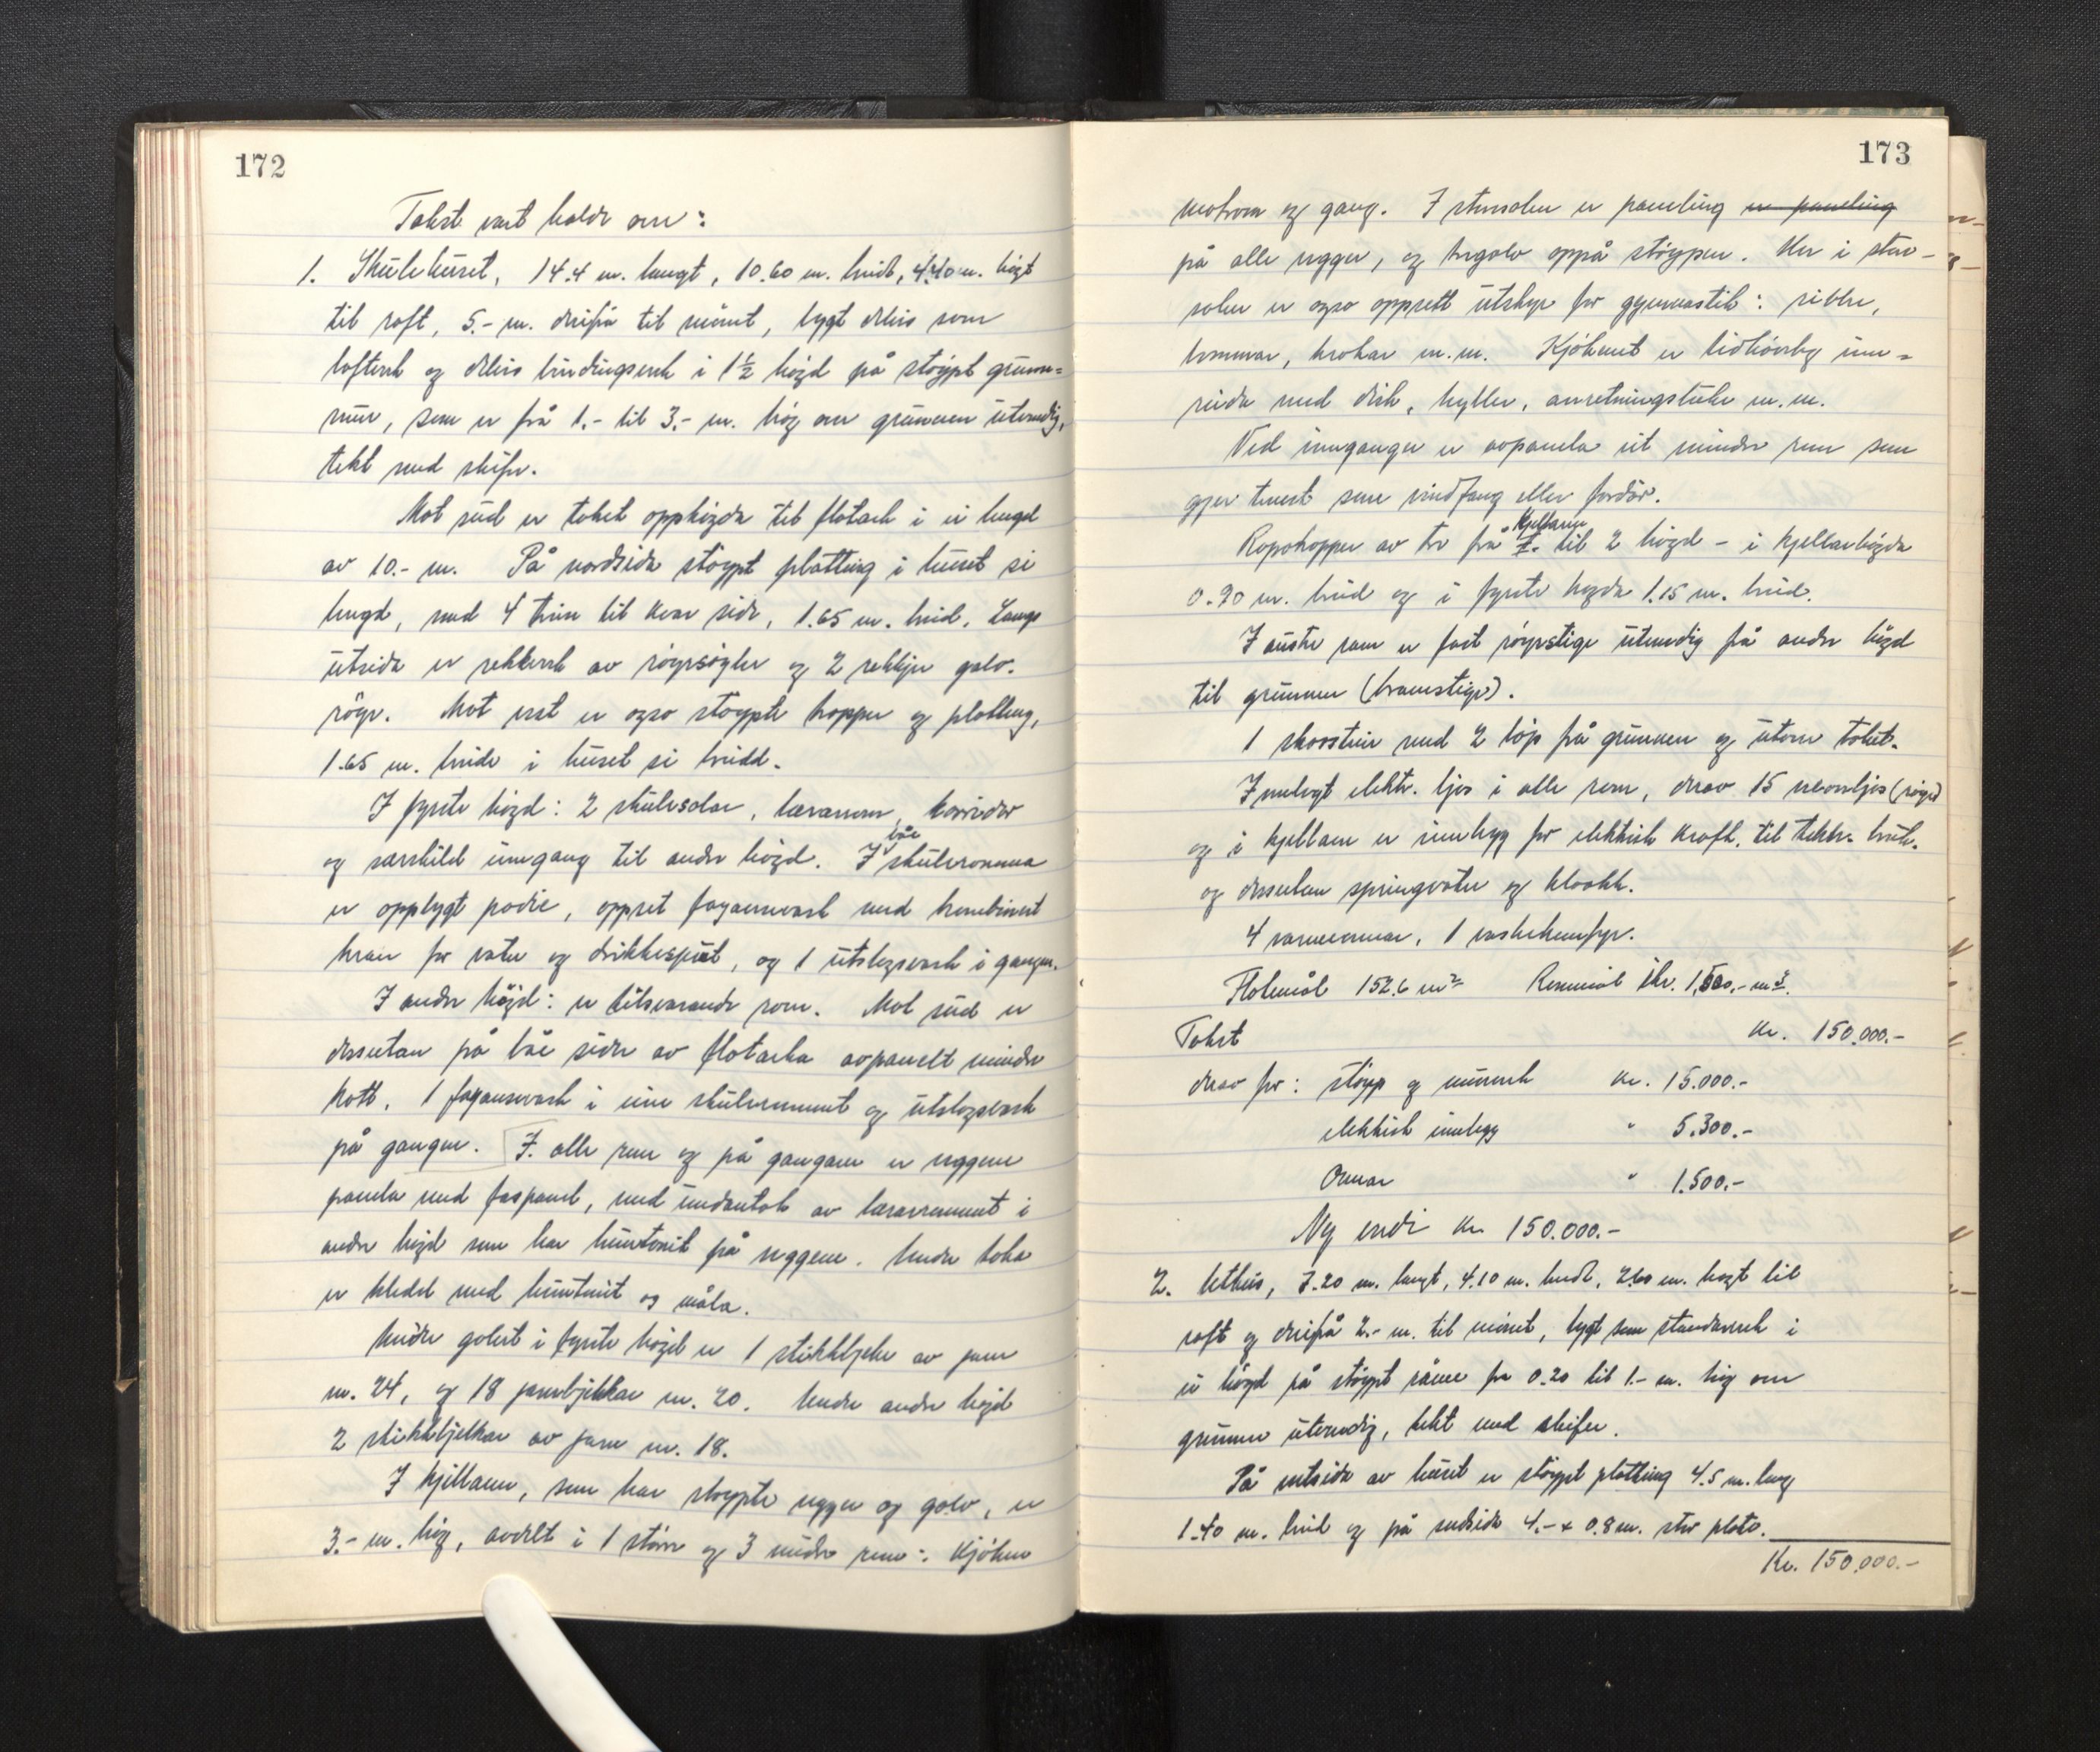 172
Takst vart halde over:
1. Skulehuset, 14.4 m. langt, 10.60 m. breidt, 4.40 m. høgt
til raft, 5.- m. derifrå til mønet, bygt delvis som
lofteverk og delvis bindingsverk i 1½ høgd på støypt grunn-
mur, som er frå 1.- til 3.- m. høg over grunnen utvendig,
tekt med skifer.
Mot sud er taket opphøgda til flatark i ei lengd
av 10.- m. På nordsida støypt platting i huset si
lengd, med 4 trin til kvar side, 1.65 m. breid. Langs
utsida er rekkverk av røyrsøyler og 2 rekkjer galv.
røyr. Mot vest er også støypte trapper og platting,
1.65 m. breide i huset si breidd.
I fyrste høgd: 2 skulesalar, lærarrom, korridor
og særskild inngang til andre høgd. I båe skuleromma
er oppbygt podie, oppset fayansevask med kombinert
kran for vatn og drikkesprut, og 1 utslagsvask i gangen.
I andre høgd: er tilsvarande rom. Mot sud er
dessutan på båe sider av flatarka avpanelt mindre
kott. 1 fayansevask i eine skulerommet og utslagsvask
på gangen. I alle rom og på gangane er veggene
panela med faspanel, med undantak av lærarrommet i
andre høgd som har huntonit på veggene. Under taka
er kledd med huntonit og måla.
Under golvet i fyrste høgd er 1 stikkbjelke av jarn
nr. 24, og 18 jarnbjelkar nr. 20. Under andre høgd
2 stikkbjelkar av jarn nr. 18.
I kjellaren, som har støypte vegger og golv, er
3.- m. høg, avdelt i 1 større og 3 mindre rom: kjøken
173
matrom og gang. I storsalen er paneling er paneling
på alle vegger, og tregolv oppå støypen. Her i stor-
salen er også oppsett utstyr for gymnastik: ribber,
bommar, krokar m.m. Kjøkenet er tidhøveleg inn-
reida med disk, hyller, anretningsbenk m.m.
Ved inngangen er avpanela eit mindre rom som
gjer tenest som vindfang eller fordør.
Rapatrapper av tre frå 1. kjellaren til 2 høgd - i kjellarhøgda
0.90 m. breid og i fyrste høgda 1.15 m. breid.
I austre rom er fast røyrstige utvendig frå andre høgd
til grunnen (brannstige).
1 skorstein med 2 løp frå grunnen og utover taket.
Innlagt elektr. ljos i alle rom, derav 15 neonljos (røyr)
og i kjellaren er innlegg for elektrisk kraft. til tekn. bruk.
og dessutan springvatn og kloakk.
4 varmeomnar, 1 vaskekumfyr.
Flatemål 152.6 m² Rommål ikr. 1.500.- m³.
Takst kr. 150.000.-
derav for: støyp og murverk kr. 15.000.-
elektrisk innlegg " 5.300.-
Omnar " 1.500.-
Ny verdi kr. 150.000.-
2. Uthus, 7.20 m. langt, 4.10 m. breidt, 2.60 m. høgt til
raft og derifrå 2.- m. til mønet, bygt som standarverk i
ei høgd på støypt råme fr 0.20 til 1.- m. høg over
grunnen utvendig, tekt med skifer.
På vestsida av huset er støypt platting 4.5 m. lang
1.40 m. breid og på sudsida 4.- x 0.8 m. stor plate.
Kr. 150.000.-